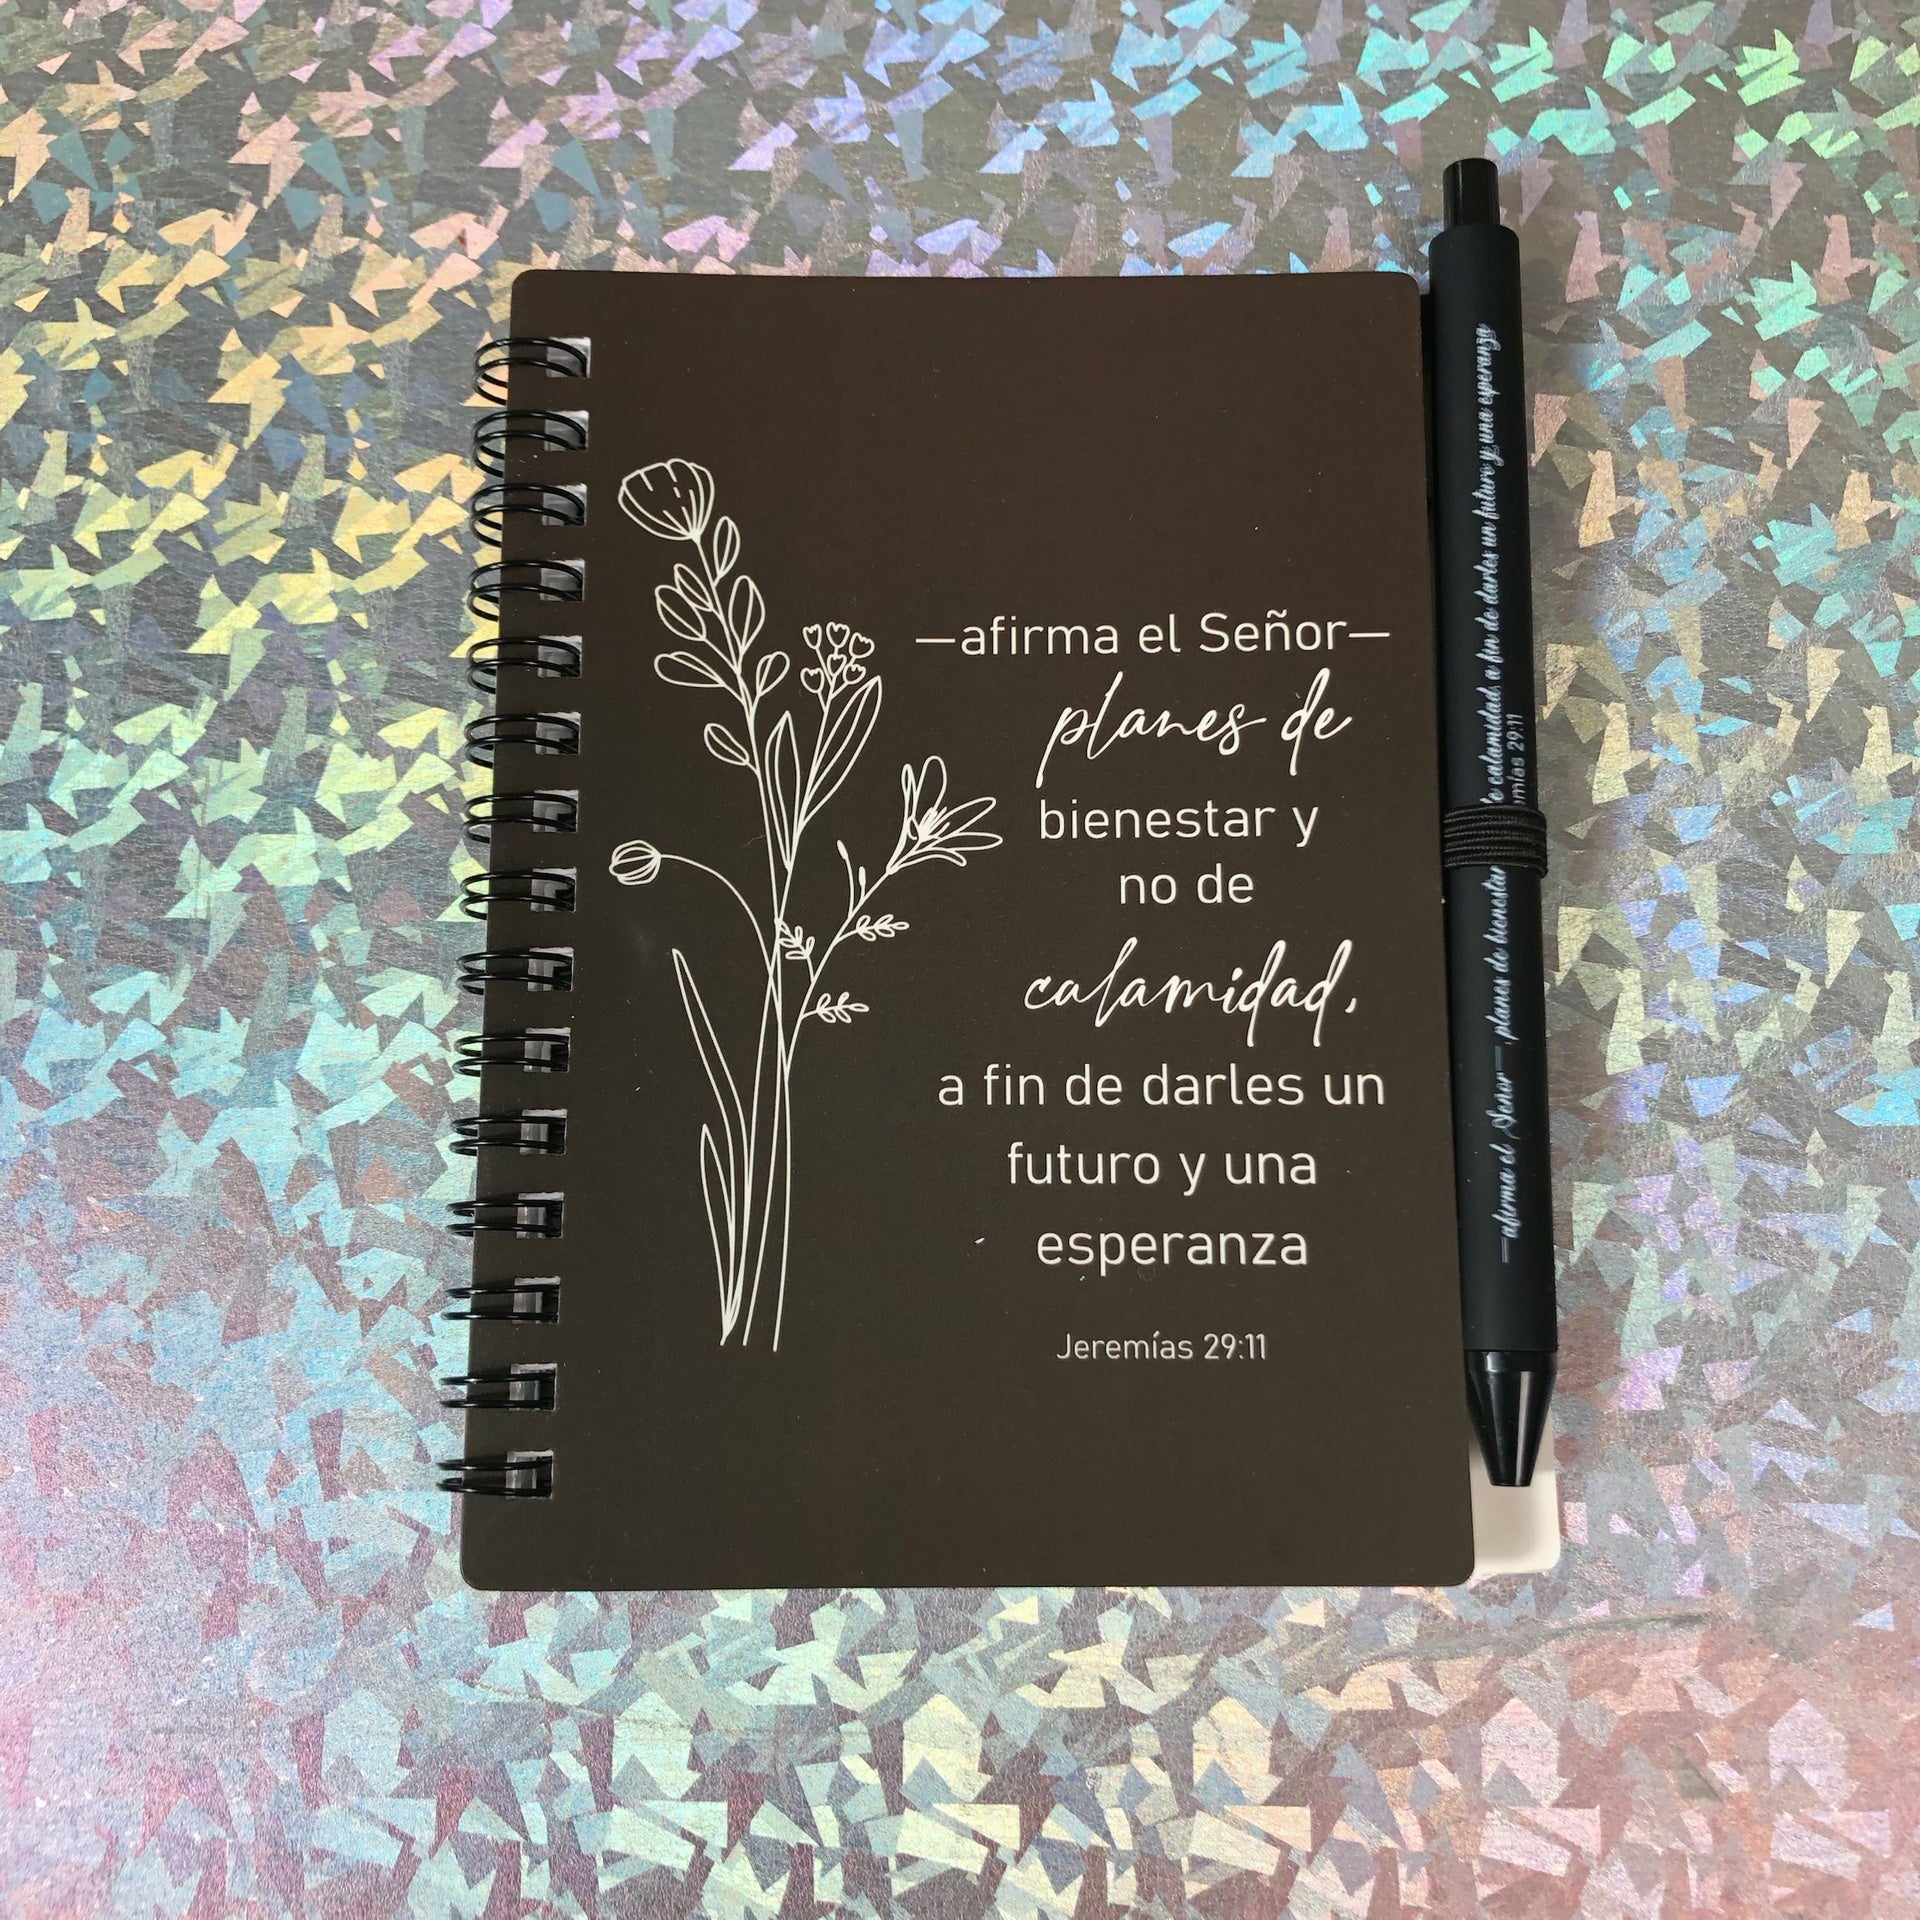 —afirma el Señor—
planes de
bienestar y
no de
calamidad,
a fin de darles un
futuro y una
esperanza
Jeremías 29:11
—afirma el Señor— planes de bienestar de calamidad a fin de darles un futuro y una esperanza
29:11